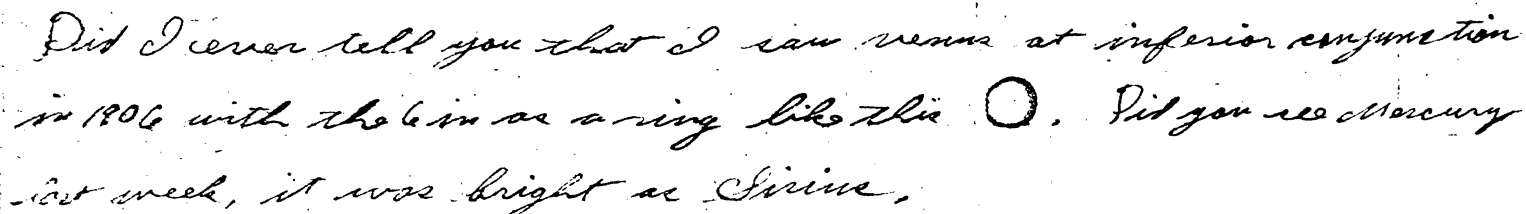 Did I ever tell you that I saw venus at inferior conjunction
in 1906 with the 6 in as a ring like this O. Did you see Mercury
last week, it was bright as Sirius.